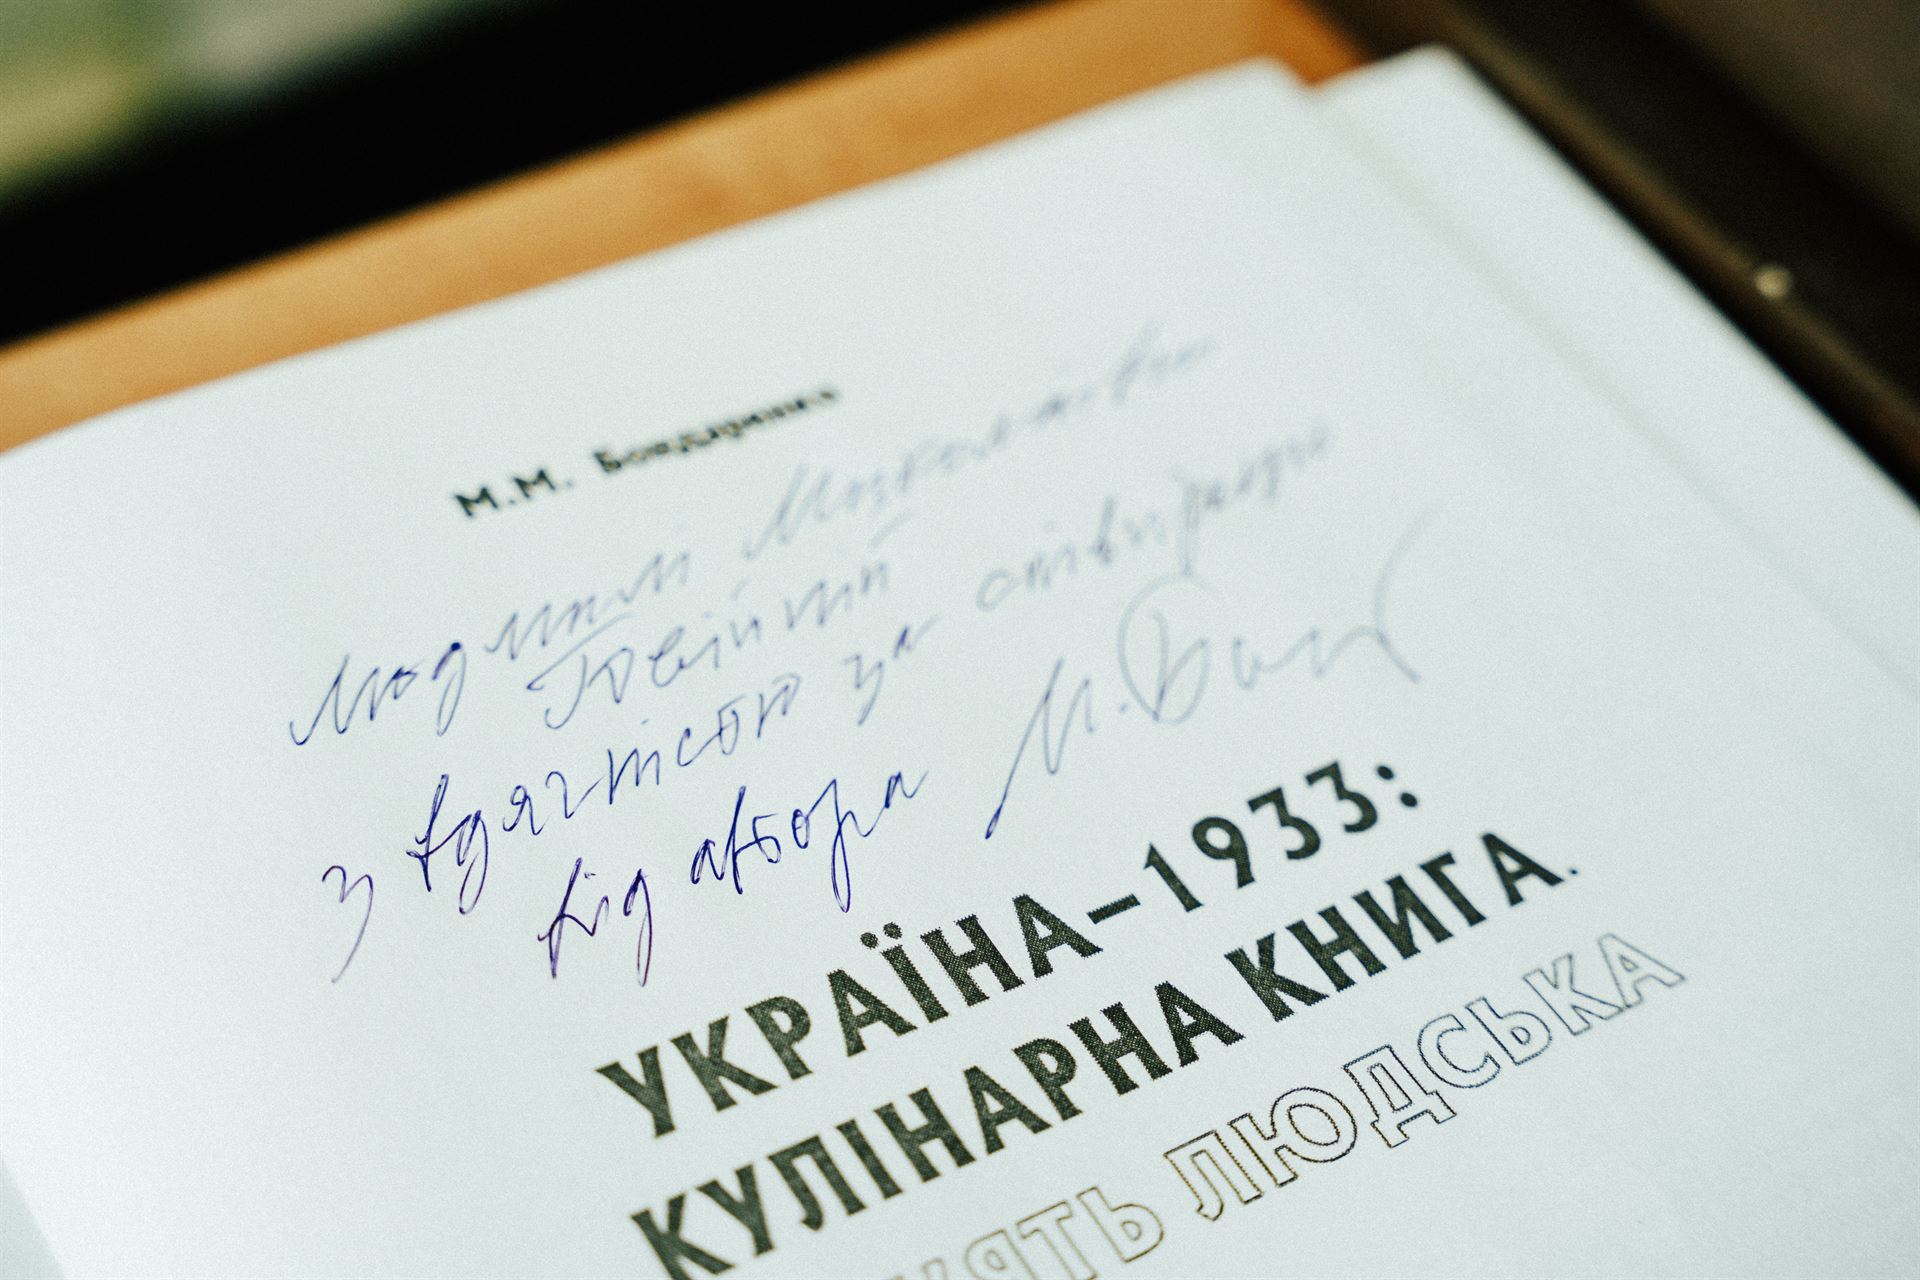 М.М. Бондаренко
Людмилі Миколаївні
з вдячністю за співпрацю
від автора М. Бонд
УКРАЇНА–1933:
КУЛІНАРНА КНИГА.
ЛЮДСЬКА